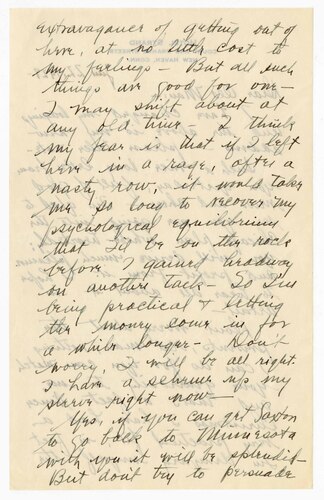 extravagance of getting out of
here, at no little cost to
my feelings - But all such
things are good for one -
I may shift about at
any old time - I think
my fear is that if I left
here in a rage, after a
nasty row, it would take
me so long to recover my
psychological equilibrium
that I'd be on the rock
before I gained headway
on another tack - So I'm
being practical & letting
the money come in for
a while longer - Don't
worry, I will be all right.
I have a scheme up my
sleeve right now -
Yes, if you can get Saxton
to go back to Minnesota
with you it will be splendid -
But don't try to persuade